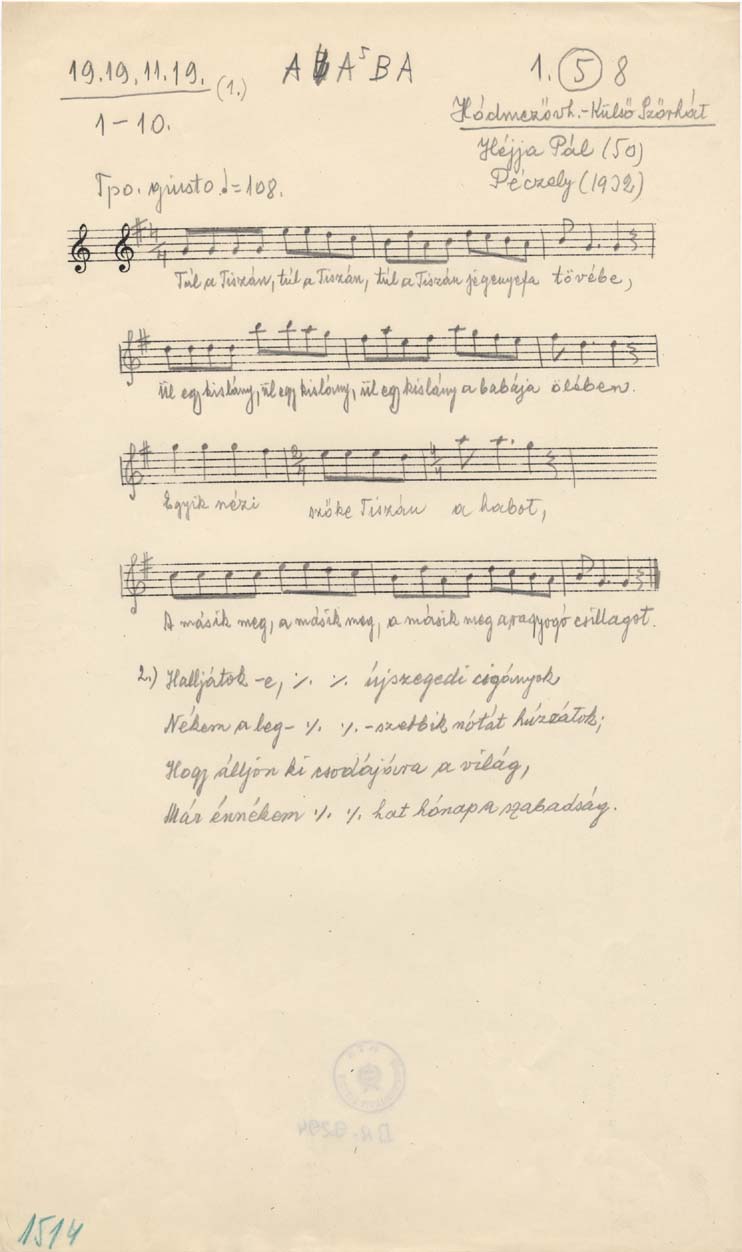 19.19.11.19. (1.) A A⁵ B A 1. 5 8
1-10.
Hódmezővh.-Külső Szőrhát
Héjja Pál (50)
Péczely (1932)
Tpo. giusto ♩=108.
4/4
Túl a Tiszán, túl a Tiszán, túl a Tiszán jegenyefa tövébe,
Ül egy kislány, ül egy kislány, ül egy kislány a babája ölében.
2/4 4/4
Egyik nézi szőke Tiszán a habot,
A másik meg, a másik meg, a másik meg a ragyogó csillagot.
2.) Halljátok-e, ·/. ·/. újszegedi cigányok
Nékem a leg- ·/. ·/. -szebbik nótát húzzátok;
Hogy álljon ki csodájára a világ,
Már énnékem ·/. ·/. hat hónap a szabadság.
1514